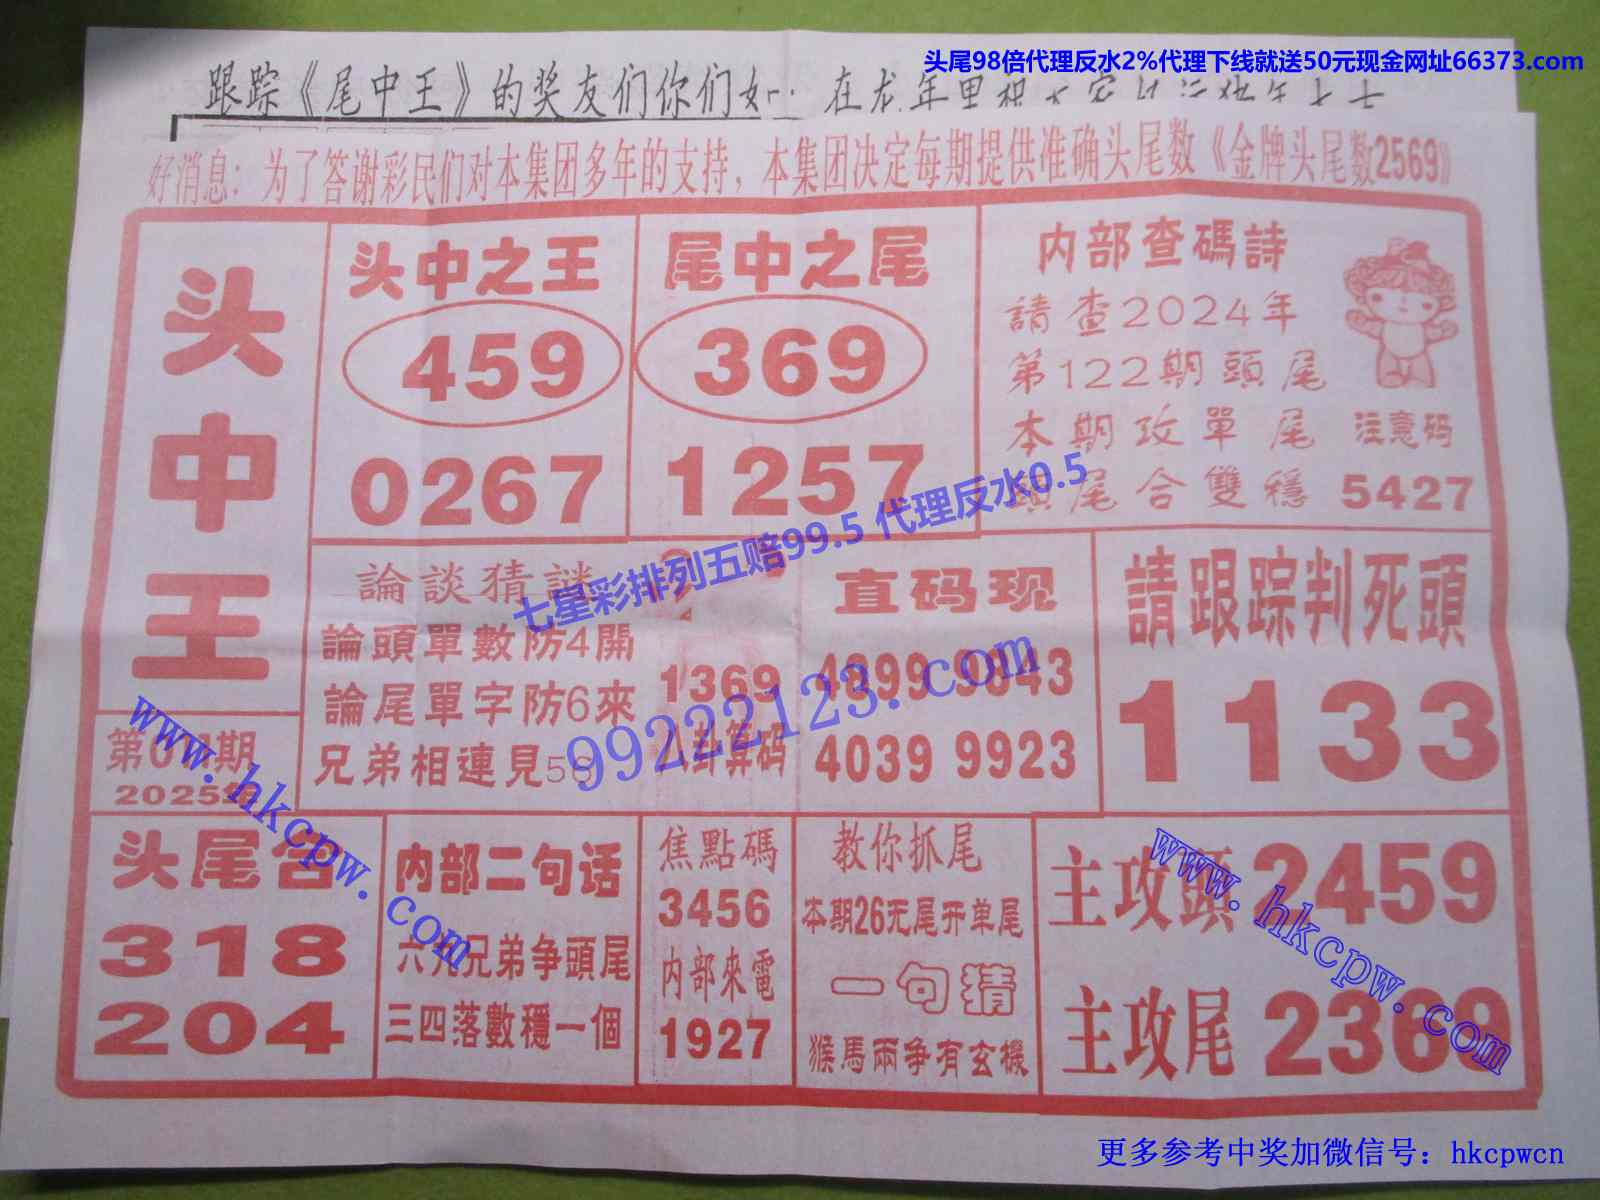 头尾98倍代理反水2%代理下线就送50元现金网址66373.com
跟踪《尾中王》的奖友们你们如
在龙年里
好消息：为了答谢彩民们对本集团多年的支持，本集团决定每期提供准确头尾数《金牌头尾数2569》
头中王
头中之王
459
0267
尾中之尾
369
1257
内部查碼詩
請查2024年
第122期頭尾
本期攻單尾
尾合雙穩
注意码
5427
七星彩排列五赔99.5 代理反水0.5
論談猜謎
論頭單數防4開
論尾單字防6來
兄弟相連見5
1369
八卦算码
直码现
4899 9843
4039 9923
請跟踪判死頭
1133
99222123.com
www.hkcpw.com
第 期
2025年
头尾合
318
204
内部二句话
六九兄弟争頭尾
三四落數穩一個
焦點碼
3456
内部來電
1927
教你抓尾
本期26无尾开单尾
一句猜
猴馬兩争有玄機
主攻頭 2459
主攻尾 2369
www.hkcpw.com
更多参考中奖加微信号：hkcpwcn